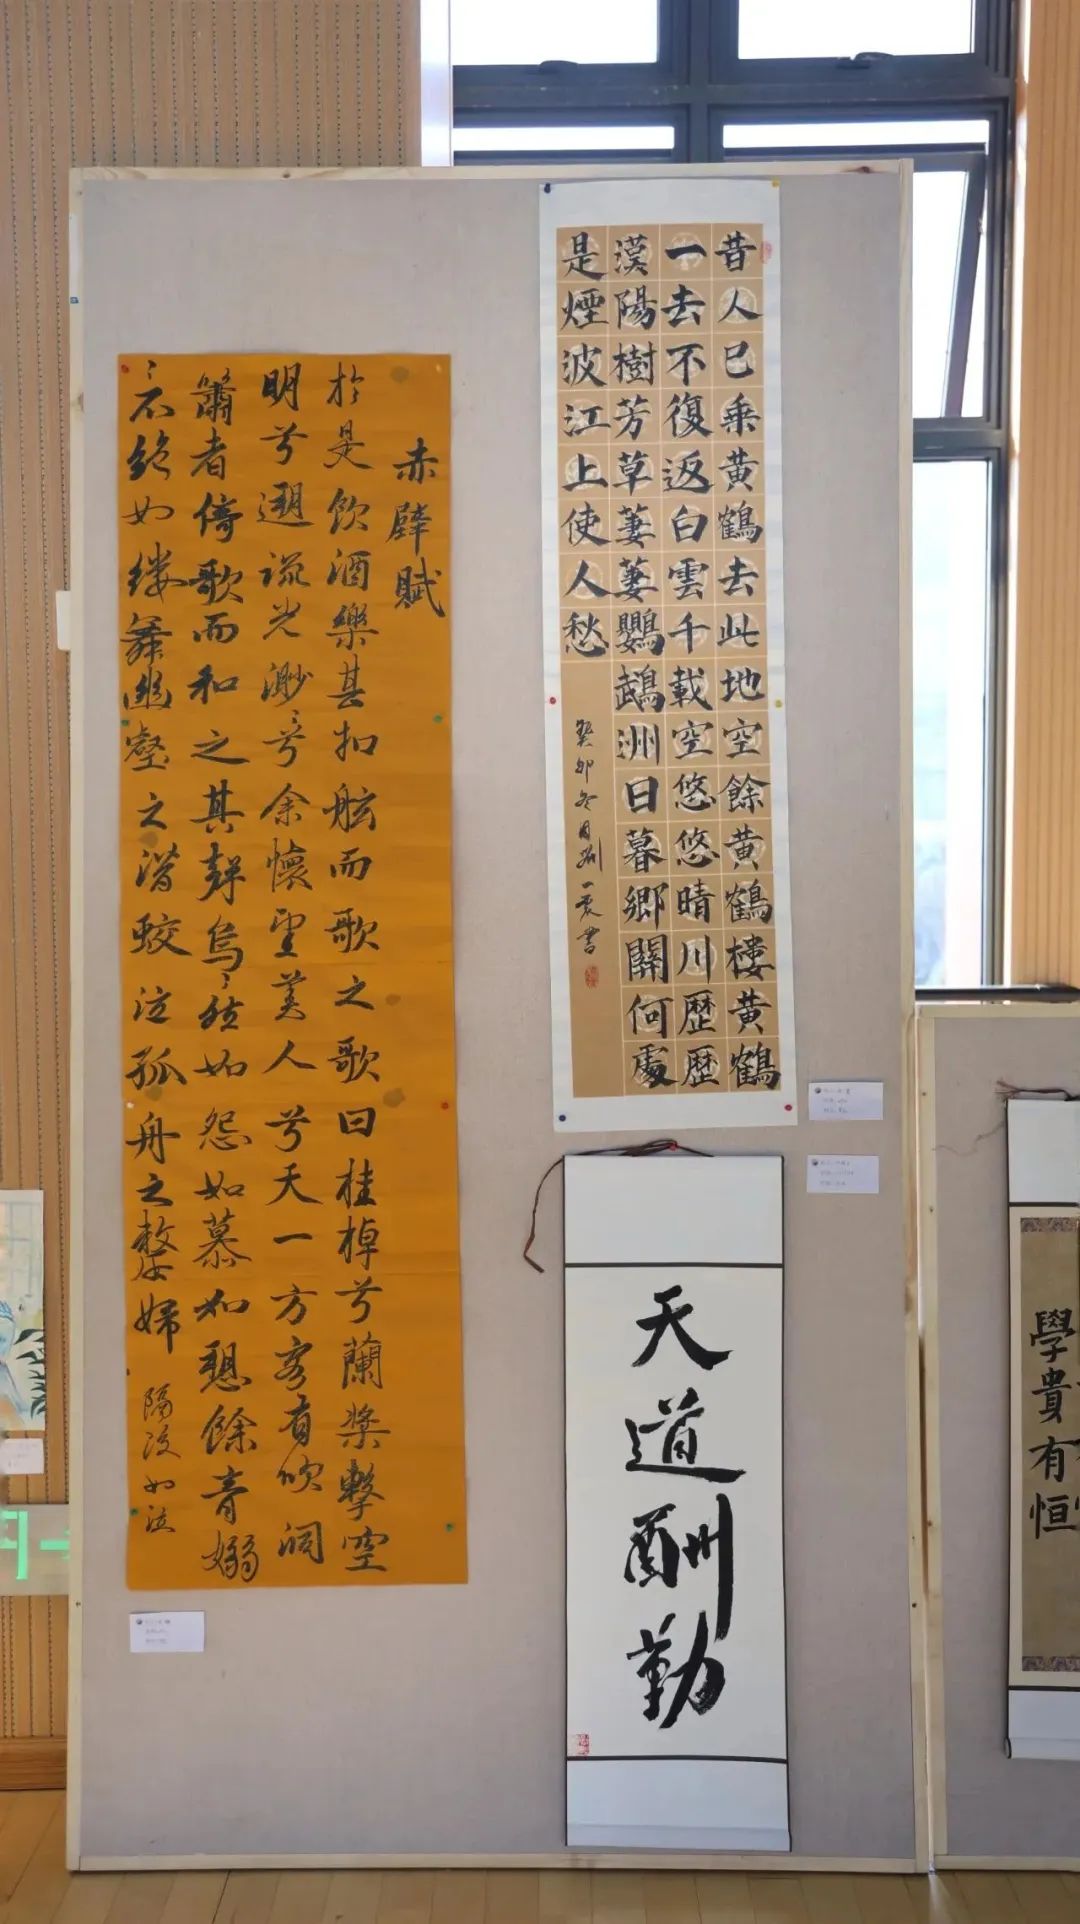 赤壁賦
於是飲酒樂甚扣舷而歌之歌曰桂棹兮蘭槳擊空
明兮遡流光渺〻兮余懷望美人兮天一方客有吹洞
簫者倚歌而和之其聲烏〻然如怨如慕如憩餘青嫋
〻不絕如縷舞幽壑之潜蛟泣孤舟之嫠婦
如泣
昔人已乘黄鶴去此地空餘黄鶴樓黄鶴
一去不復返白雲千載空悠悠晴川歷歷
漢陽樹芳草萋萋鸚鵡洲日暮鄉關何處
是煙波江上使人愁
癸卯冬月刘一書
天道酬勤
學貴有恒